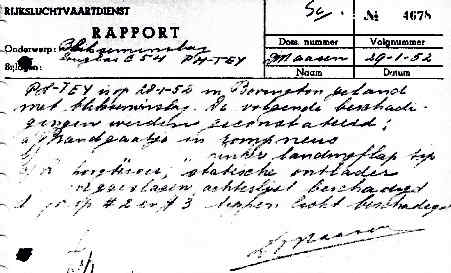 RIJKSLUCHTVAARTDIENST
RAPPORT
№ 4678
Onderwerp: Blikseminslag
Douglas C54 PH-TEY
Bijlagen:
Doss. nummer
Volgnummer
Maasen
29-1-52
Naam
Datum
PH-TEY is op 28-1-52 in geland
met blikseminslag. De volgende beschadi-
gingen werden geconstateerd:
a) brandgaatjes in rompneus
landingflap tip
statische ontlader
achterlijst beschadigd
d) prop #2 en #3 tippen licht beschadigd
Maasen